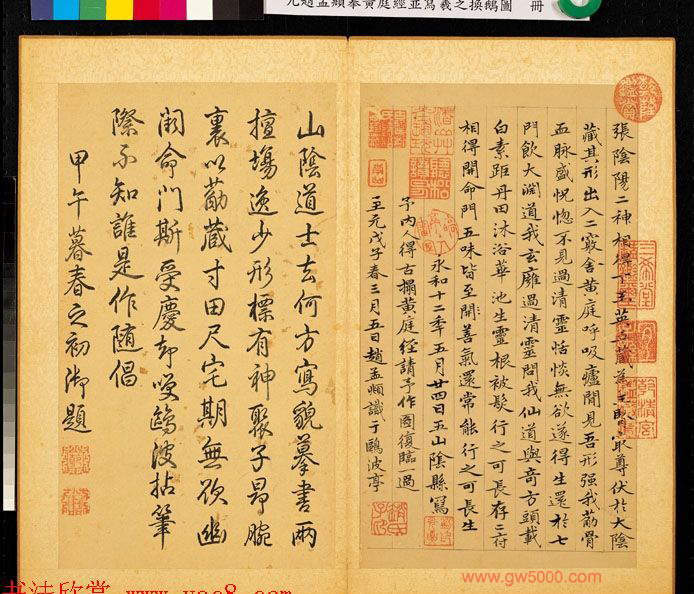 元趙孟頫摹黃庭經並寫羲之換鵝圖 冊
張陰陽二神相得下玉英五藏為主腎最尊伏於大陰
藏其形出入二竅舍黃庭呼吸廬間見吾形强我筋骨
血脉盛怳惚不見過清靈恬惔無欲遂得生還於七
門飲大淵道我玄雍過清靈問我仙道與奇方頭載
白素距丹田沐浴華池生靈根被髮行之可長存二府
相得開命門五味皆至開善氣還常能行之可長生
永和十二年五月廿四日五山陰縣寫
予內人得古搨黃庭經請予作圖復臨一過
至元戊子春三月五日趙孟頫識于鷗波亭
山陰道士去何方寫貌摹書兩
擅場逸少形標有神聚子昂腕
裏以筋藏寸田尺宅期無欲幽
闕命門斯受慶却嘆鷗波拈筆
際不知誰是作隨倡
甲午暮春之初御題
乾清宮
书法欣赏
www.gw5000.com